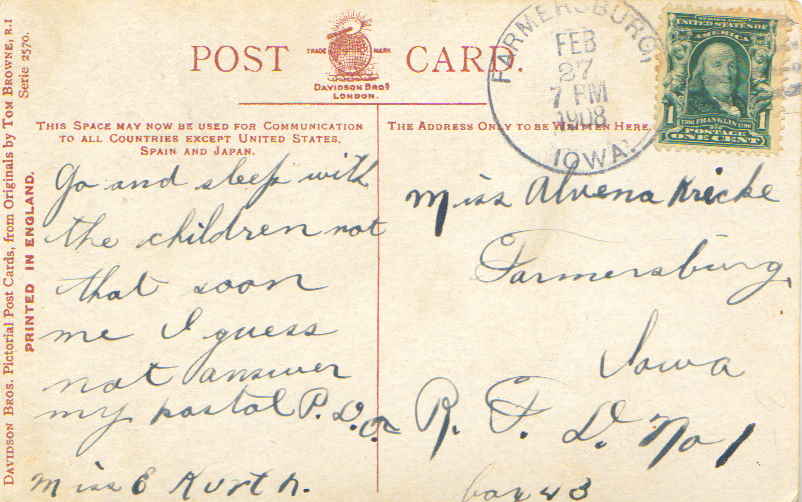 POST CARD.
TRADE MARK
DAVIDSON BROS
LONDON.
THIS SPACE MAY NOW BE USED FOR COMMUNICATION
TO ALL COUNTRIES EXCEPT UNITED STATES,
SPAIN AND JAPAN.
THE ADDRESS ONLY TO BE WRITTEN HERE.
FARMERSBURG,
FEB
27
7 PM
1908
IOWA.
UNITED STATES OF
AMERICA
1 FRANKLIN 1
POSTAGE
ONE CENT
DAVIDSON BROS. PICTORIAL POST CARDS, FROM ORIGINALS BY TOM BROWNE, R.I
Serie 2570.
PRINTED IN ENGLAND.
Go and sleep with
the children not
that soon
me I guess
not answer
my postal P.D.Q.
Miss E Kurth.
Miss Alvena Kricke
Farmersburg,
Iowa
R. F. D. No 1
box 43